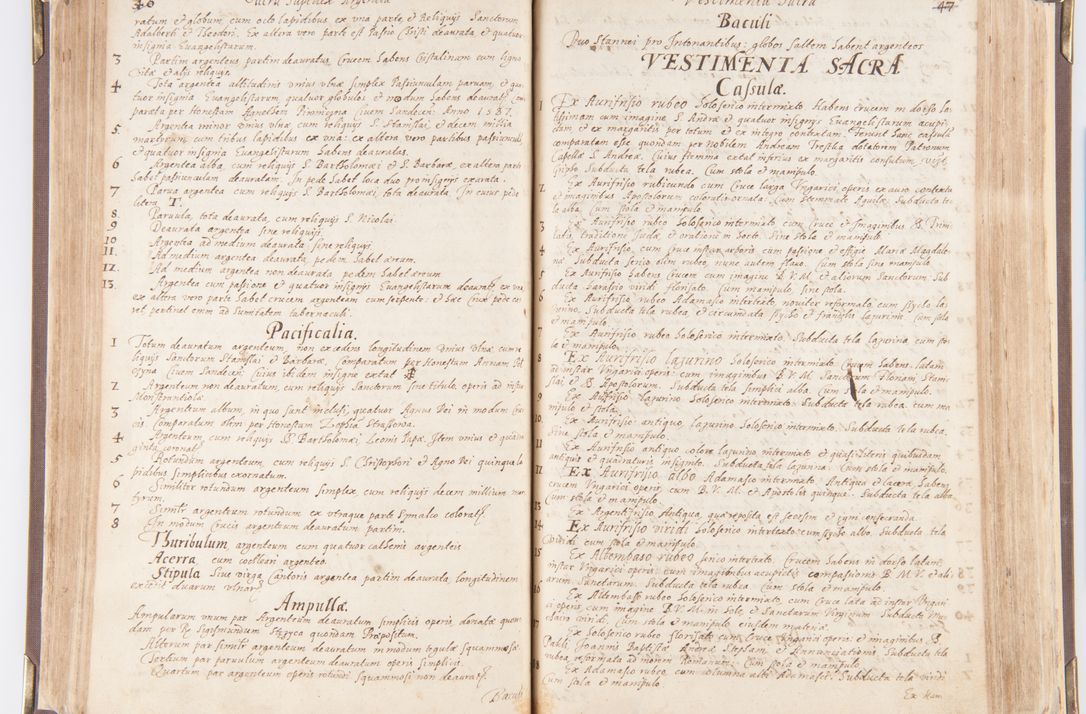 46 Sacra Supellex Argentea
ratum et globum cum octo lapidibus ex una parte, et Reliquijs Sanctorum
Adalberti et Theodori. Ex altera vero parte est Passio Christi deaurata et quatuor
insignia Evangelistarum.
3 Partim argentea partim deauratas, Crucem habens Cristalinam cum ligno
Vitæ et alijs reliquijs.
4 Tota argentea altitudinis unius ulnæ simplex Passiunculam parvam, et qua-
tuor insignia Evangelistarum quatuor globulos et nodum habens deauratos Com
parata per Honestam Civem Sandecen: Anno 1587.
5 Argentea minor unius ulnæ cum reliquijs S. Stanislai et decem millia
martyrum, cum tribus lapidibus ex una: ex altera vero partibus passiunculæ
et quatuor insignia Evangelistarum habens deauratas.
6 Argentea alba, cum reliquijs S. Bartholomæi et S. Barbaræ, ex altera parte
habet passiunculam deauratam. In pede habet loca duo pro insignijs exarata.
7 Parva argentea cum reliquijs S. Bartholomæi, tota deaurata, In cuius pede
litera T.
8. Parvula, tota deaurata, cum reliquijs S. Nicolai.
9 Deaurata argentea sine reliquijs.
10 Argentea ad medium deaurata sine reliquijs.
11. Ad medium argentea deaurata, pedem habet æreum.
12. Ad medium argentea non deaurata pedem habet æreum
13. Argentea cum passione et quatuor insignijs Evangelistarum deauratis ex una,
ex altera vero parte habet crucem argenteam cum serpente: et hæc Crux pede ca
ret, pertinet enim ad Sumitatem tabernaculi.
Pacificalia.
1 Totum deauratum argenteum, non excedens longitudinem unius ulnæ cum re
liquijs Sanctorum Stanislai et Barbaræ, Comparatum per Honestam Annam
Civem Sandecen: Cuius ibidem insigne extat
2 Argenteum non deauratum, cum reliquijs Sanctorum sine titulo, operis ad instar
Monstrantiola.
3 Argenteum album, in quo sunt inclusi, quatuor Agnus Dei in modum Cru
cis. Comparatum olim per Honestam Zophia
4 Argenteum cum reliquijs S. Bartholomæi Leonis Papæ, Item unius et quadra
ginta coronat
5 Rotundum argenteum, cum reliquijs S. Christophori et Agno Dei quinque la
pidibus simplicibus exornatum.
6 Similiter rotundum argenteum simplex cum reliquijs decem millium mar
tyrum.
7 Simile argenteum rotundum ex utraque parte Smalco coloratum
8 In modum Crucis argenteum deauratum partim.
Thuribulum argenteum cum quatuor cathenis argenteis
Acerra cum cochleari argenteo.
Stipula sive virga Cantoris argentea partim deaurata, longitudinem
excedit duarum ulnarum.
Ampullæ.
Ampularum unum par Argenteum deauratum simplicis operis, donatum quon
dam per R. Sigismundum quondam Præpositum.
Alterum par simile argenteum deauratum in modum tegulæ squammosæ.
Tertium par parvulum argenteum deauratum operis simplicis.
Quartum par argenteum operis rotundi squammosi non deauratum.
Baculi
Vestimenta Sacra 47
Baculi
Duo stannei pro Intonantibus: globos saltem habent argenteos
VESTIMENTA SACRA
Casulæ.
1 Ex Aurifrisio rubeo Holoserico intermixto. Habens crucem in dorso la
tissimam cum imagine S. Andreæ et quatuor insignijs Evangelistarum acupi
ctam, et ex margaritis per totum et ex integro contextam. Ferunt hanc casulam
comparatam esse quondam per Nobilem Andream dotatorem Patronum
Capellæ S. Andreæ. Cuius stemma extat inferius ex margaritis consutum,
Subducta tela rubea. Cum stola et manipulo.
2. Ex Aurifrisio rubicundo cum Cruce larga Ungarici operis ex auro contexta
et imaginibus Apostolorum coloratis ornata. Cum stemmate Aquilæ. Subducta te
la alba, Cum stola et manipulo.
3 Ex Aurifrisio rubeo Holoserico intermixto cum Cruce et Imaginibus B.
traditione Judæ, et orationis in horto. Sine stola et manipulo.
4 Ex Aurifrisio, cum Cruce instar arboris cum passione et effigie Mariæ Magdale
næ Subducta serico olim rubeo, nunc autem flavo. Cum stola sine manipulo.
5 Ex Aurifrisio habens Crucem cum imagine B. V. M. et aliorum Sanctorum. Sub
ducta harassio viridi, florisato. Cum manipulo, sine stola.
6 Ex Aurifrisio rubeo Adamasco intertexto, noviter reformato cum
Subducta tela rubea et circumdata et frangijs lazurinis Cum stola
et manipulo.
7 Ex Aurifrisio rubeo Holoserico intermixto. Subducta tela lazurina, cum sto
la et manipulo.
8 Ex Aurifrisio lazurino Holoserico intermixto, Crucem habens latam
ad instar Ungarici operis: cum imaginibus B. V. M. Sanctorum Floriani Stanis
lai et B. Apostolorum. Subducta tela simplici alba, cum stola et manipulo.
9 Ex Aurifrisio lazurino Holoserico intermixto. Subducta tela rubea, cum ma
nipulo et stola.
10. Ex Aurifrisio antiquo, lazurino Holoserico intermixto. Subducta tela rubea.
Sine stola et manipulo.
11 Ex Aurifrisio antiquo colore lazurino intermixto et quasi literis quibusdam
antiquis et quadraturis insignito. Subducta tela lazurina. Cum stola et manipulo.
12 Ex Aurifrisio albo Adamasco intermixto. Antiqua et lacera. habens
crucem Ungarici operis, cum B. V. M. et Apostolis quinque. Subducta tela alba
Cum stola et manipulo.
13 Ex Argentifrisio Antiqua, quæ reposita est
14. Ex Aurifrisio viridi Holoserico intertexto albo. Subducta tela
viridi cum stola et manipulo.
15 Ex Altembaso rubeo serico intertexto, Crucem habens in dorso latam,
instar Ungarici operis, cum imaginibus acupictis compassionis B. M. V. et ali
arum Sanctarum. Subducta tela rubea Cum stola et manipulo.
16 Ex Altembasso rubeo Holoserico intermixto, cum Cruce lata ad instar Ungari
ci operis, cum imagine B. V. M. in Sole, et Sanctarum Virginum Subducta
viridi. Cum stola et manipulo eiusdem materiæ.
17 Ex Holoserico rubeo florisato cum Cruce Ungarici operis: et imaginibus S.
Pauli, Joannis Baptistæ Andreæ Stephani et Annunciationis. Subducta tela
rubea, reformata ad morem Romanum. Cum stola et manipulo.
18 Ex Adamasco rubeo, cum columna albi Adamasci. Subducta tela viridi
Cum stola et manipulo.
Ex Ham